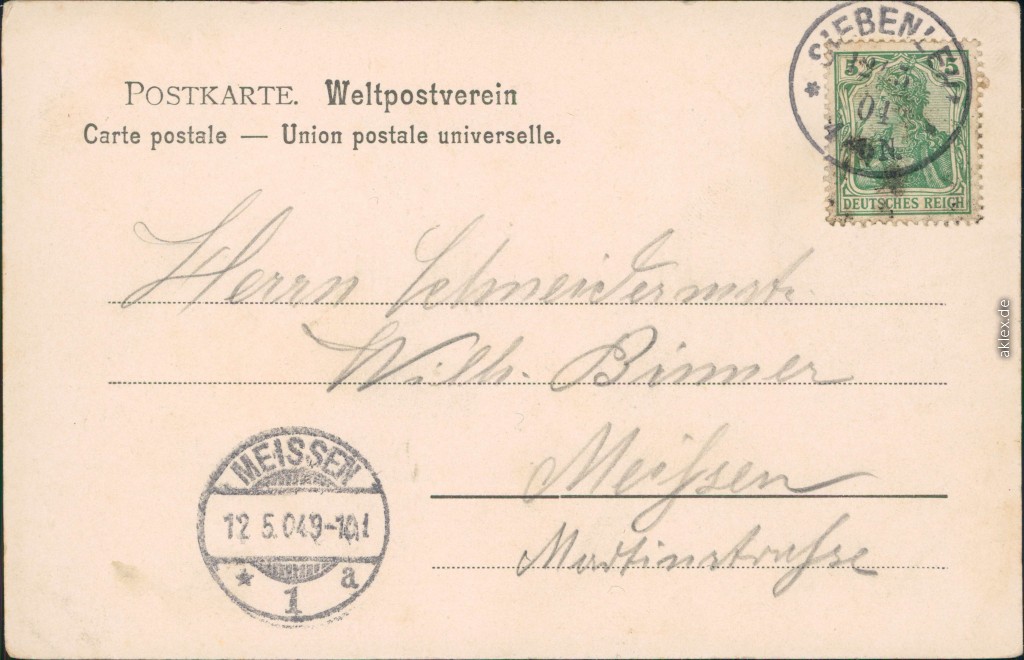 POSTKARTE. Weltpostverein
Carte postale — Union postale universelle.
SIEBENLEHN
04
4-5 N.
5 5
DEUTSCHES REICH
Herrn Schneidermstr.
Wilh. Binner
Meißen
Martinstraße
MEISSEN
12 5.04 9-10V
* a
1
aklex.de